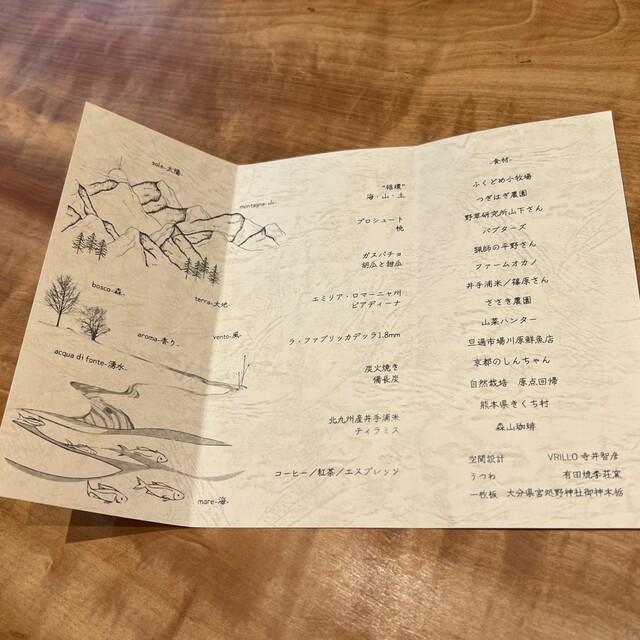 sole-太陽-
montagna-山-
bosco-森-
terra-大地-
aroma-香り-
vento-風-
acqua di fonte-湧水-
mare-海-
"循環"
海・山・土
プロシュート
桃
ガスパチョ
胡瓜と甜瓜
エミリア・ロマーニャ州
ピアディーナ
ラ・ファブリッカデッラ1.8mm
炭火焼き
備長炭
北九州産井手浦米
ティラミス
コーヒー／紅茶／エスプレッソ
-食材-
ふくどめ小牧場
つぎはぎ農園
野草研究所山下さん
バブターズ
猟師の平野さん
ファームオカノ
井手浦米／篠原さん
ささき農園
山菜ハンター
旦過市場川原鮮魚店
京都のしんちゃん
自然栽培　原点回帰
熊本県きくち村
森山珈琲
空間設計　VRILLO 寺井智彦
うつわ　有田焼李荘窯
一枚板　大分県宮処野神社御神木栃